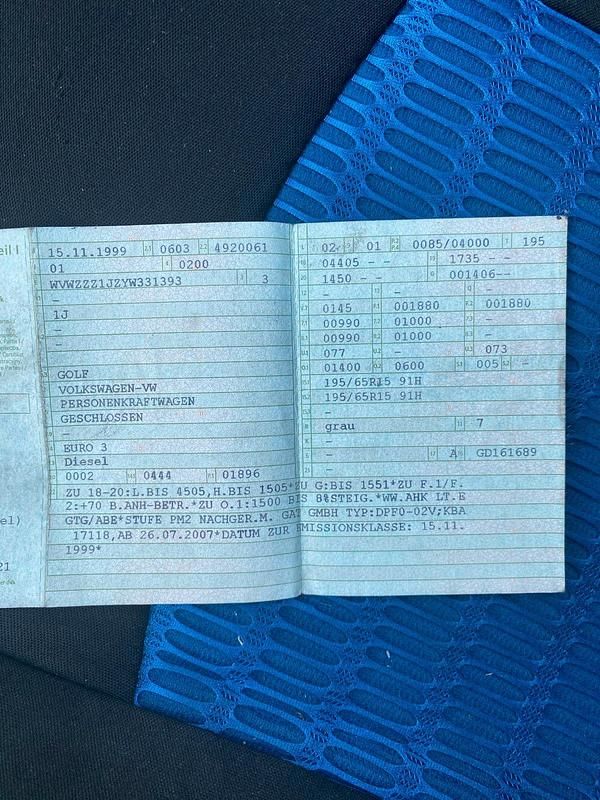 eil I
15.11.1999 0603 4920061
01 0200
WVWZZZ1JZYW331393 3
–
1J
–
–
GOLF
VOLKSWAGEN-VW
PERSONENKRAFTWAGEN
GESCHLOSSEN
–
EURO 3
Diesel
0002 0444 01896
02 01 0085/04000 195
04405 – – 1735 – –
1450 – – 001406––
– – –
0145 001880 001880
00990 01000 –
00990 01000 –
077 – 073
01400 0600 005 –
195/65R15 91H
195/65R15 91H
–
grau 7
–
– A GD161689
–
ZU 18-20:L.BIS 4505,H.BIS 1505*ZU G:BIS 1551*ZU F.1/F.
2:+70 B.ANH-BETR.*ZU O.1:1500 BIS 8%STEIG.*WW.AHK LT.E
GTG/ABE*STUFE PM2 NACHGER.M. GAT GMBH TYP:DPF0-02V;KBA
17118,AB 26.07.2007*DATUM ZUR EMISSIONSKLASSE: 15.11.
1999*
el)
21